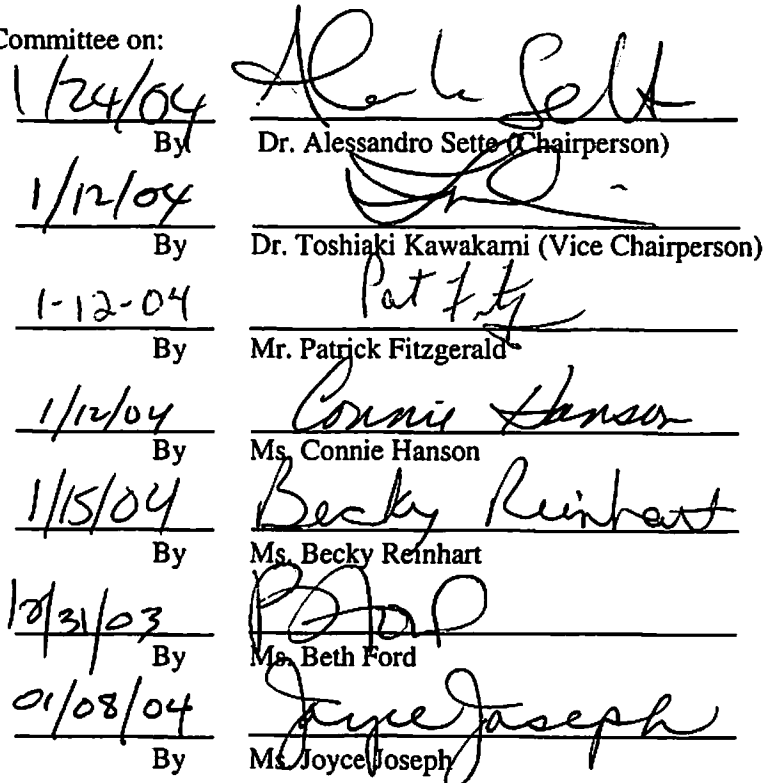 Committee on:
1/24/04 Alessandro Sette
By Dr. Alessandro Sette (Chairperson)
1/12/04
By Dr. Toshiaki Kawakami (Vice Chairperson)
1-12-04 Pat Fitz
By Mr. Patrick Fitzgerald
1/12/04 Connie Hanson
By Ms. Connie Hanson
1/15/04 Becky Reinhart
By Ms. Becky Reinhart
12/31/03 B Ford
By Ms. Beth Ford
01/08/04 Joyce Joseph
By Ms. Joyce Joseph